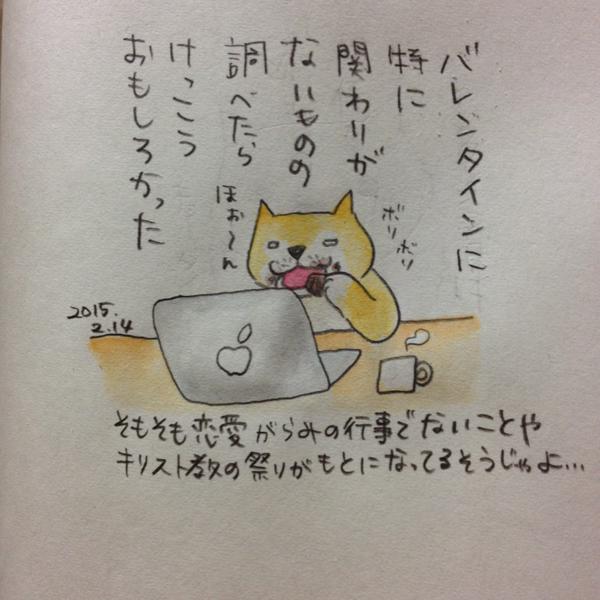 バレンタインに
特に
関わりが
ないものの
調べたら
けっこう
おもしろかった
ボリボリ
ほぉ〜ん
2015.
2.14
そもそも恋愛がらみの行事でないことや
キリスト教の祭りがもとになってるそうじゃよ…